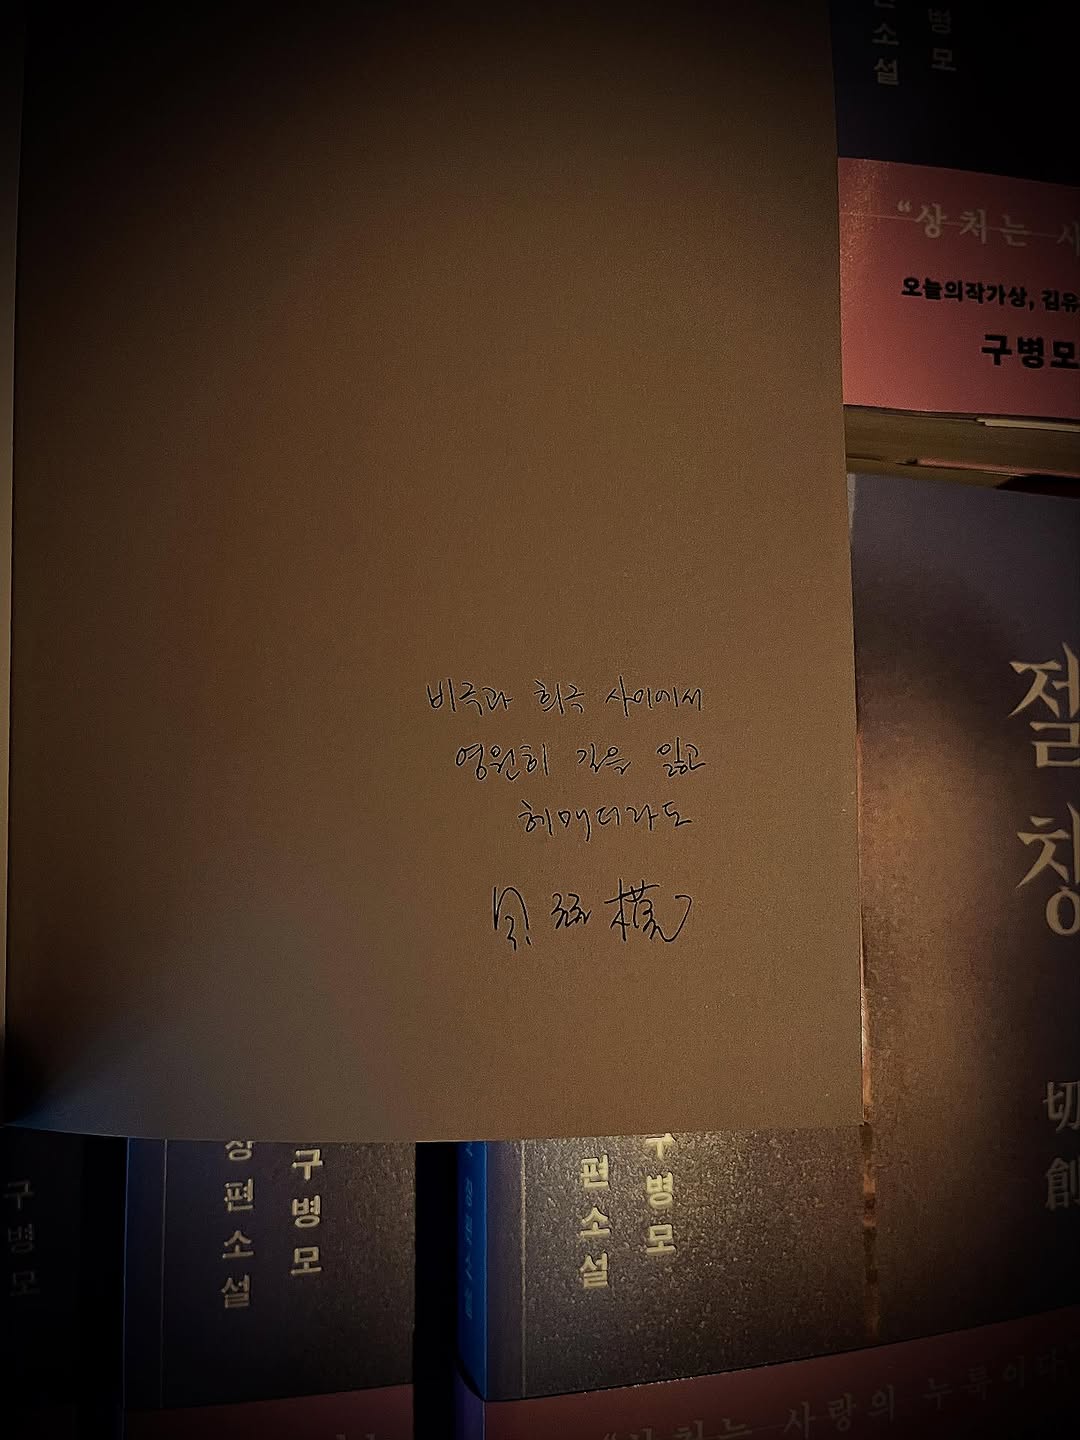 비극과 희극 사이에서
영원히 길을 잃고
헤매더라도
소설
병모
"상처는
오늘의작가상, 김유
구병모
절창
切創
구병모
장편소설
구병모
편소설
구병모
"상처는 사랑의 누룩이다